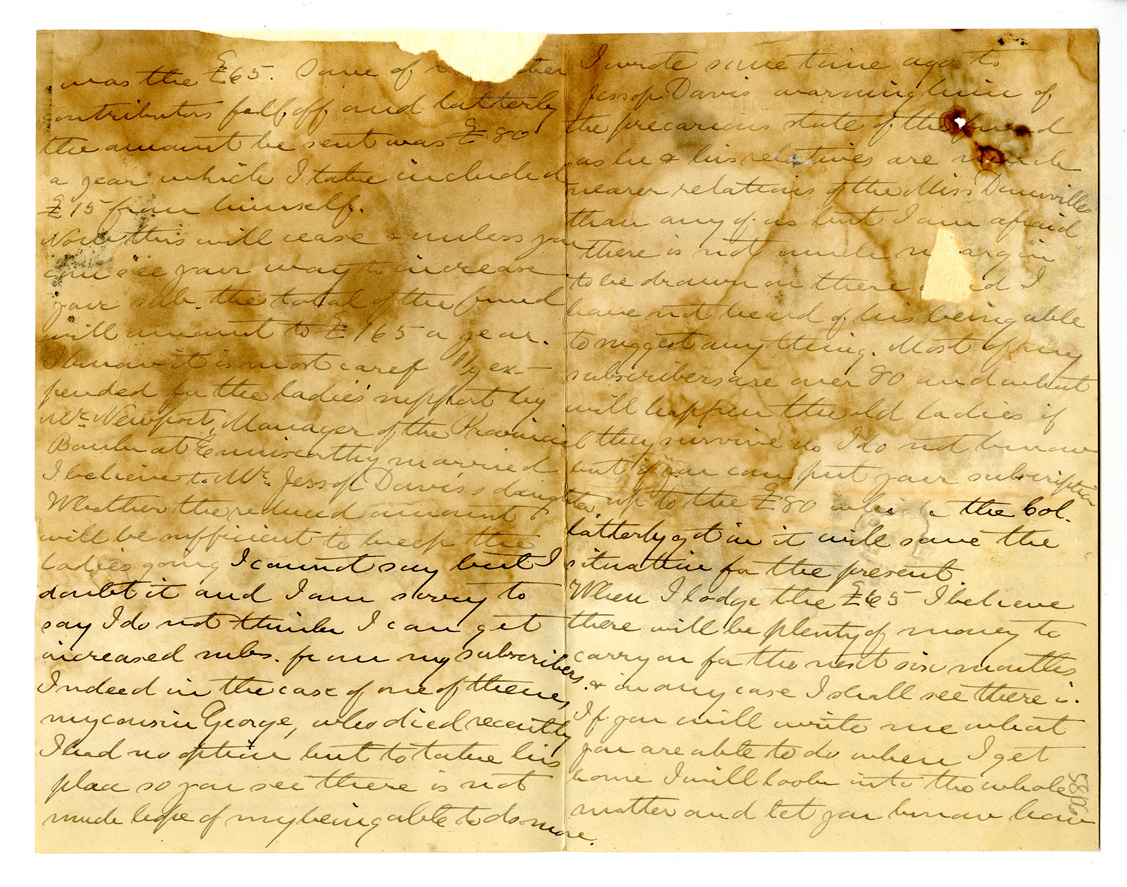 was the £65. Some of other
contributors fell off and latterly
the amount he sent was £80
a year which I take included
£15 from himself.
Now this will cease & unless you
can see your way to increase
your sub. the total of the fund
will amount to £165 a year.
I know it is most caref lly ex-
pended for the ladies' support by
Mr. Newport, Manager of the Provincial
Bank at Enniscorthy married
I believe to Mr. Jessop Davis's daughter
Whether the reduced amount
will be sufficient to keep the
ladies going I cannot say but I
doubt it and I am sorry to
say I do not think I can get
increased subs. from my subscribers.
Indeed in the case of one of them,
my cousin George, who died recently
I had no option but to take his
place so you see there is not
much hope of my being able to do more.
I wrote some time ago to
Jessop Davis warning him of
the precarious state of the fund
as he & his relatives are much
nearer relations of the Miss
than any of us but I am afraid
there is not much margin
to be drawn on there and I
have not heard of his being able
to suggest anything. Most of my
subscribers are over 80 and what
will happen the old ladies if
they survive us I do not know
but if you can put your subscription
up to the £80 which the Col.
latterly got in it will save the
situation for the present
When I lodge the £65 I believe
there will be plenty of money to
carry on for the next six months
& in any case I shall see there is.
If you will write me what
you are able to do when I get
home I will look into the whole
matter and let you know how